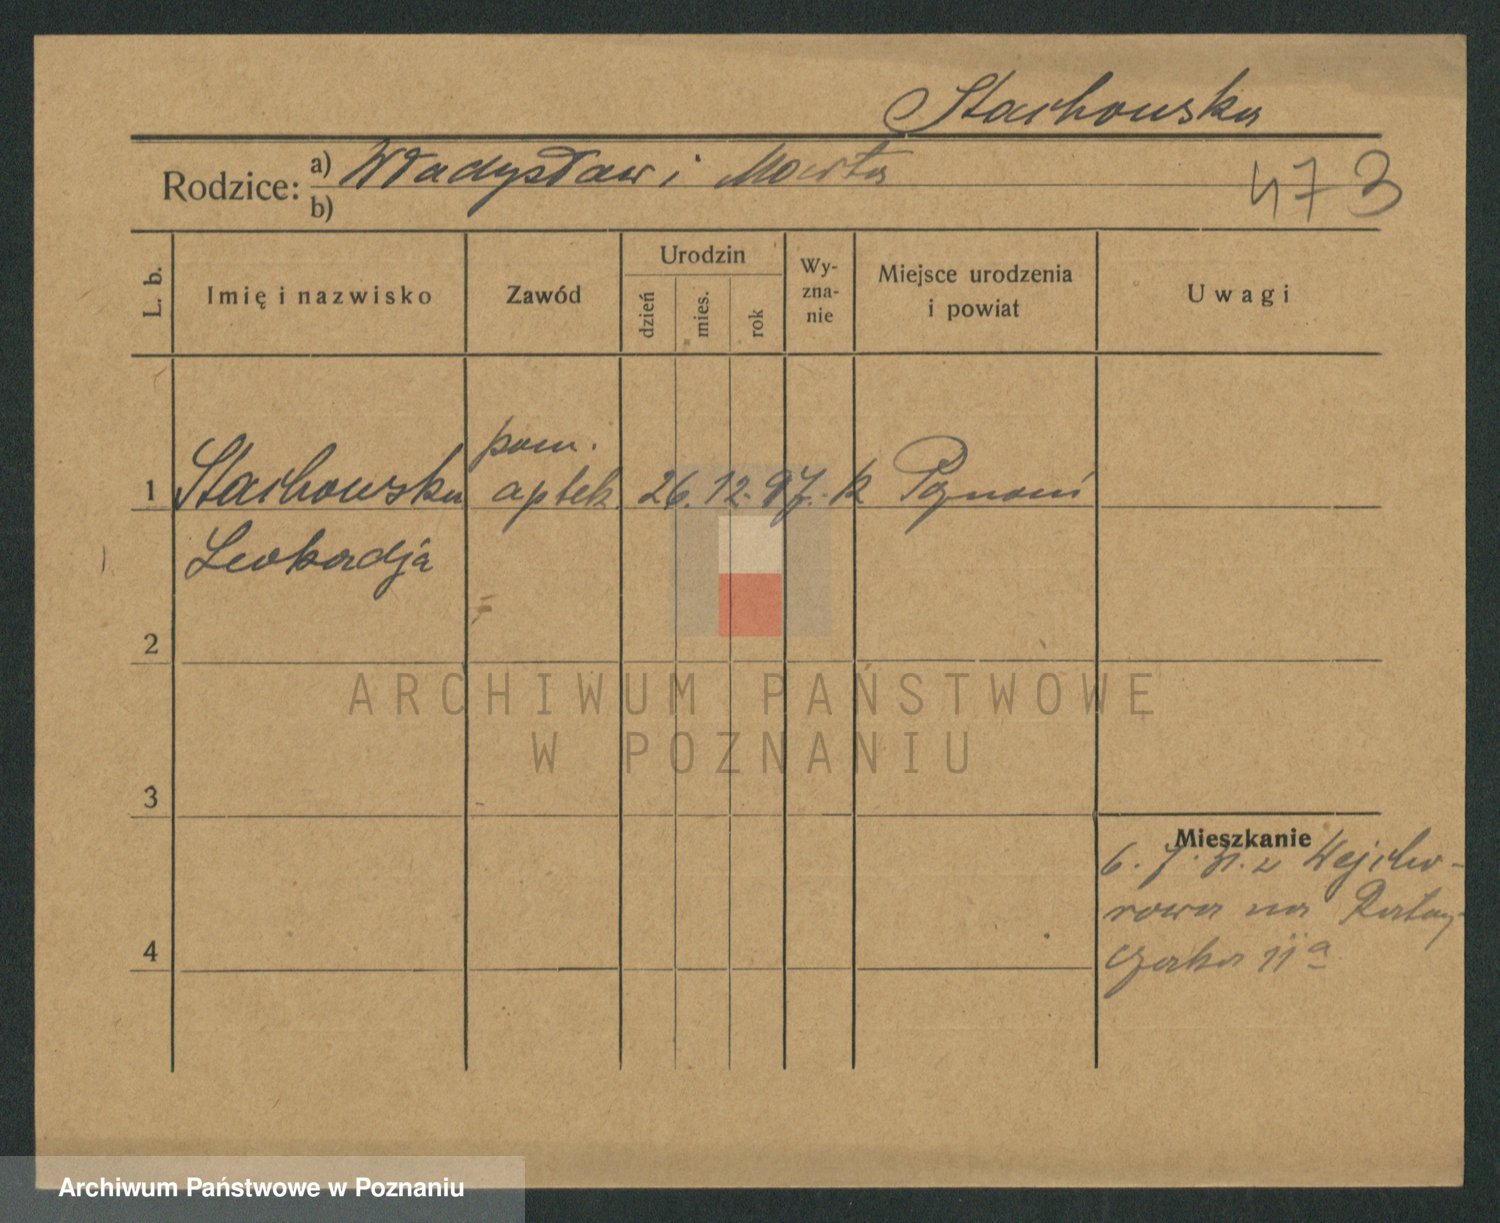 Stachowska
Rodzice: a) Władysław i Marta
b)
473
L. b.
Imię i nazwisko
Zawód
Urodzin
dzień
mies.
rok
Wy-
zna-
nie
Miejsce urodzenia
i powiat
Uwagi
pom.
1 Stachowska aptek. 26. 12. 97. k Poznań
Leokadja
2
3
4
Mieszkanie
6. 7. 31. z Wejche-
rowa na Rataj-
czaka 11a
ARCHIWUM PAŃSTWOWE
W POZNANIU
Archiwum Państwowe w Poznaniu